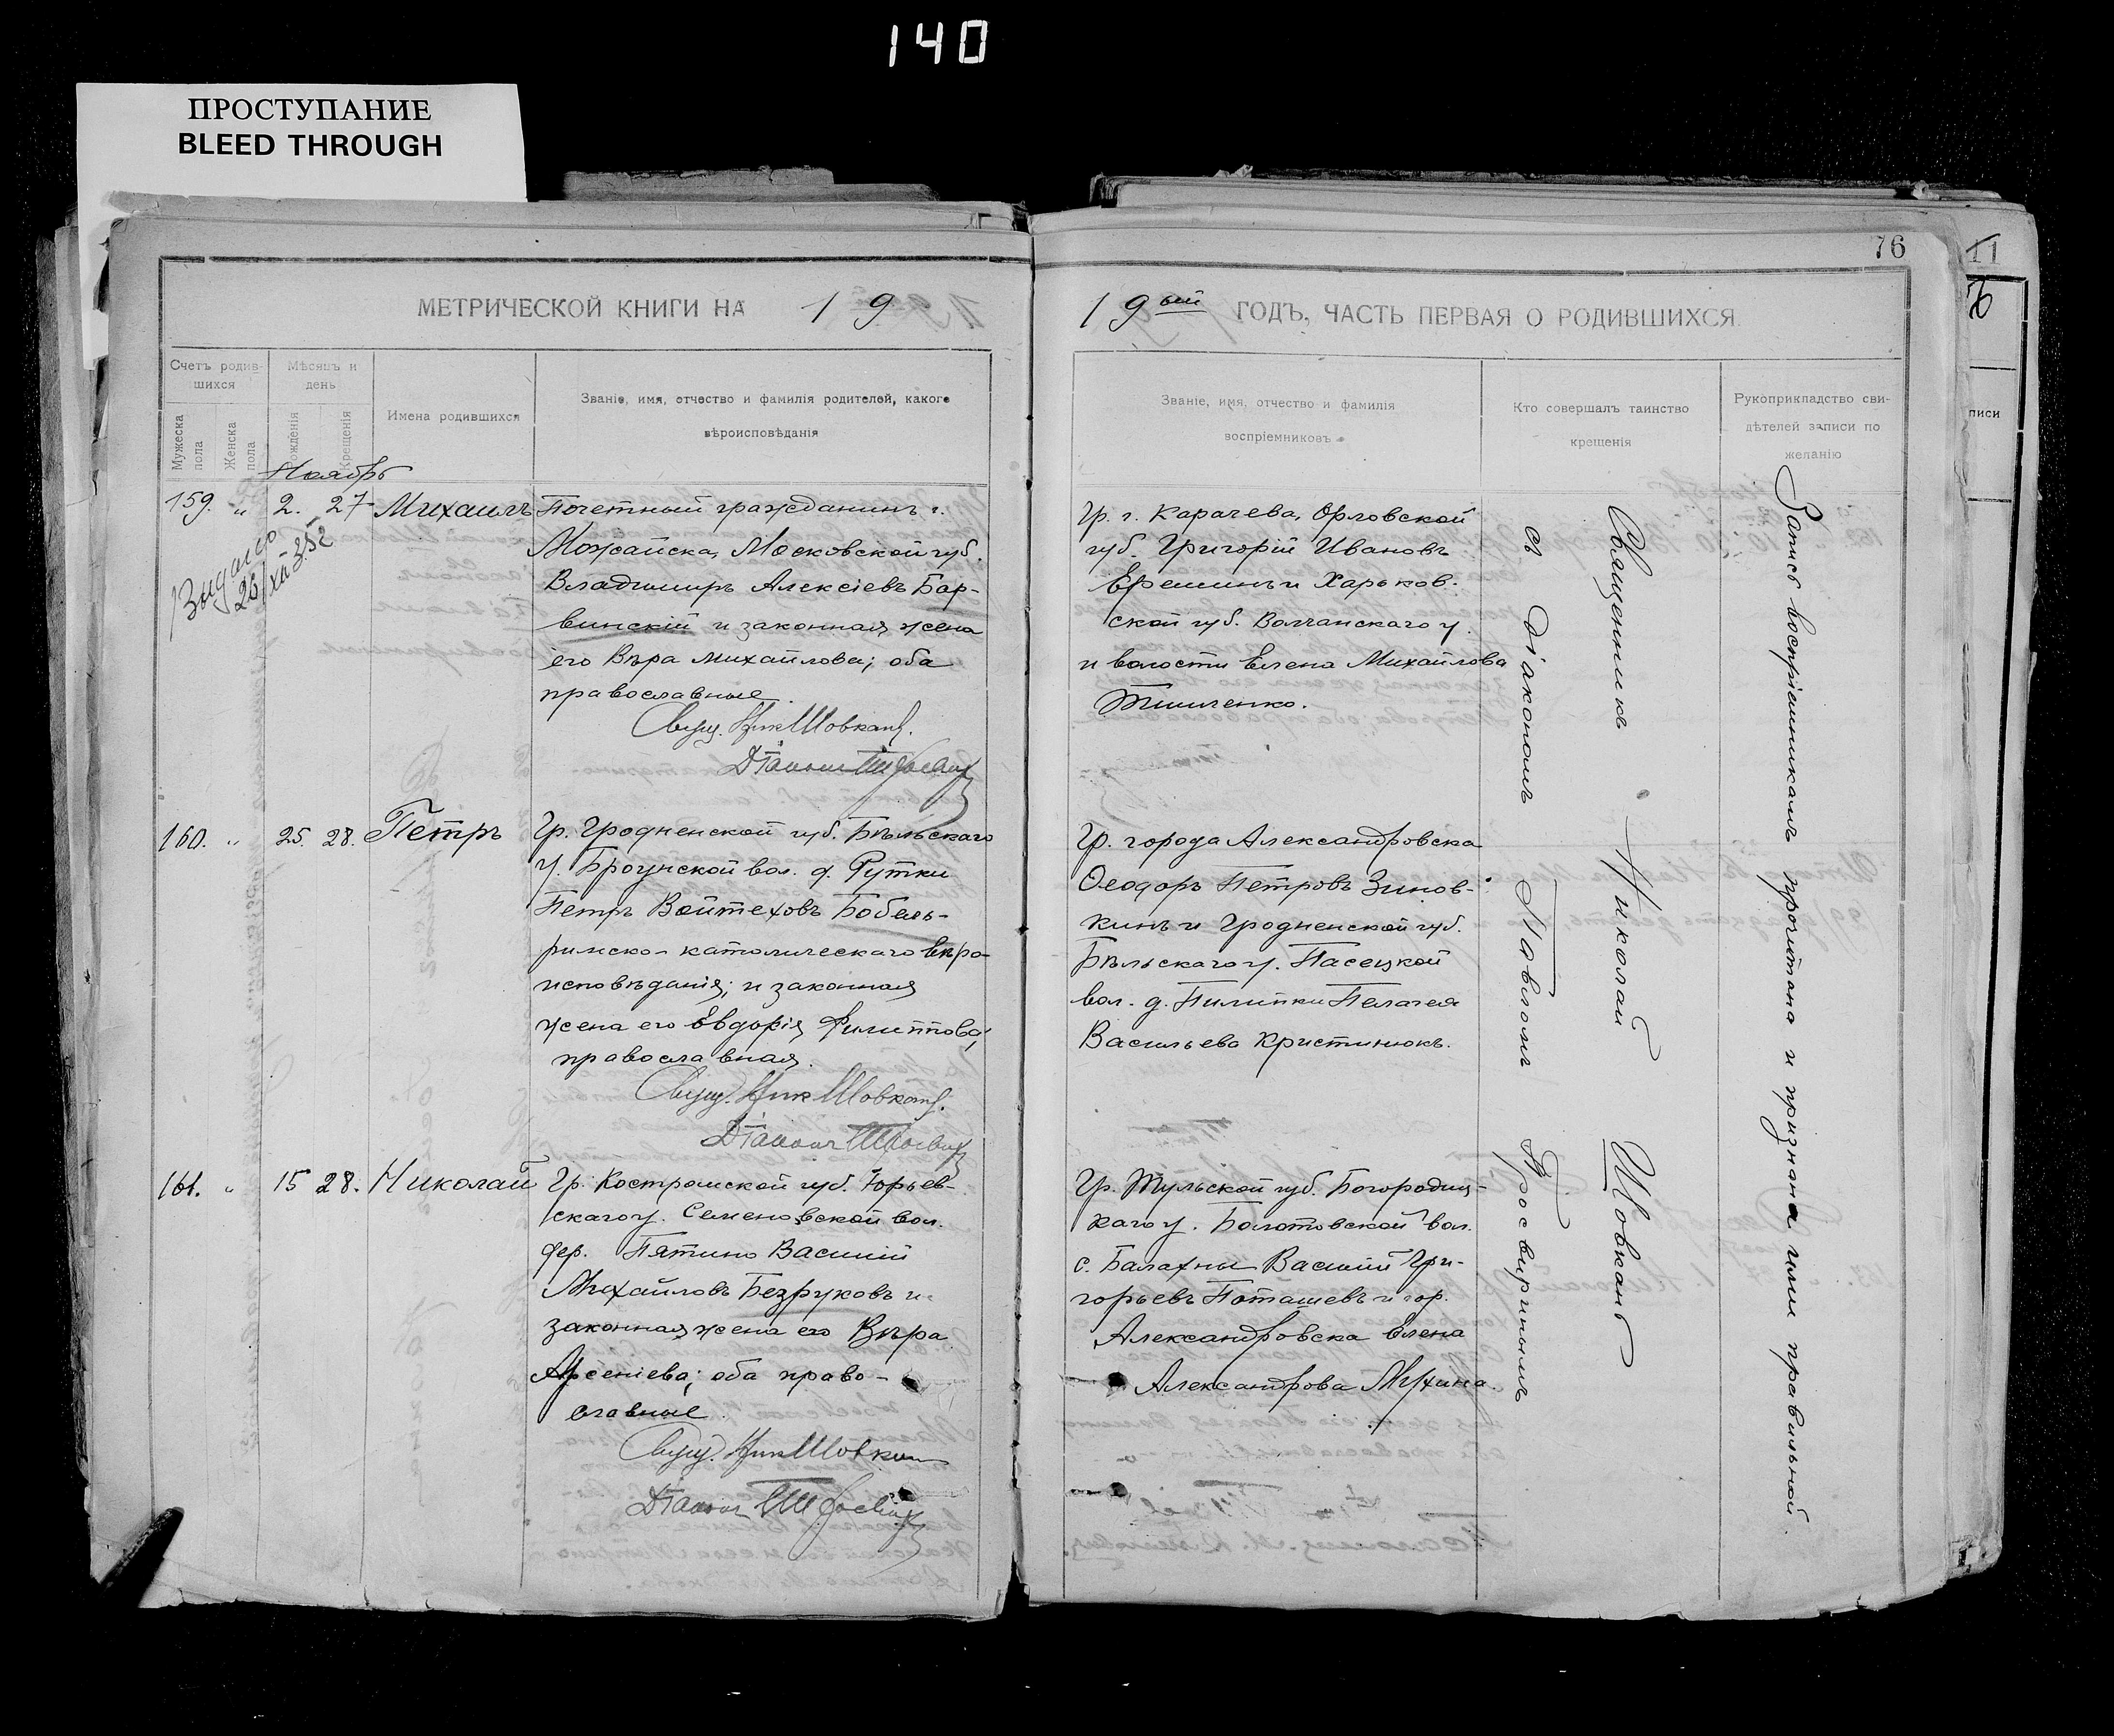 140
ПРОСТУПАНИЕ
BLEED THROUGH
76
11
МЕТРИЧЕСКОЙ КНИГИ НА 19
19ый ГОДЪ, ЧАСТЬ ПЕРВАЯ О РОДИВШИХСЯ
Счетъ родив-
шихся
Мужеска пола
Женска пола
Мѣсяцъ и
день
рожденія
Крещенія
Имена родившихся
Званіе, имя, отчество и фамилія родителей, какого
вѣроисповѣданія
Званіе, имя, отчество и фамилія
воспріемниковъ
Кто совершалъ таинство
крещенія
Рукоприкладство сви-
дѣтелей записи по
желанію
писи
Ноябрь
159. " 2. 27 Михаилъ
Почетный гражданинъ г.
Можайска, Московской губ.
Владимиръ Алексіевъ Бар-
винскій и законная жена
его Вѣра Михайлова; оба
православные.
Свящ. Ник Шовкань.
Діаконъ
Выдано
Гр. г. Карачева, Орловской
губ. Григорій Ивановъ
Ерешинъ и Харьков-
ской губ. Волчанскаго у.
и волости Елена Михайлова
Тимченко.
160. " 25. 28. Петръ
Гр. Гродненской губ. Бѣльскаго
у. Брочнской вол. д. Рутки
Петръ Войтеховъ Бобель-
римско-католическаго вѣро-
исповѣданія; и законная
жена его Евдокія Филиппова,
православная.
Свящ. Ник Шовкань.
Діаконъ
Гр. города Александровска
Ѳеодоръ Петровъ Зинов-
кинъ и Гродненской губ.
Бѣльскаго у. Пасецкой
вол. д. Пилипки Пелагея
Васильева Кристинюкъ.
161. " 15 28. Николай
Гр. Костромской губ. Юрьев-
скаго у. Семеновской вол.
дер. Пятино Василій
Михайловъ Безруковъ и
законная жена его Вѣра
Арсеніева; оба право-
славные.
Свящ. Ник Шовкань
Діаконъ
Гр. Тульской губ. Богородиц-
каго у. Болотовской вол.
с. Балахны Василій Гри-
горьевъ Поташевъ и гор.
Александровска Елена
Александрова Михина.
Священникъ Николай Шовкань
съ діакономъ Павломъ Просвирнинымъ
Запись воспріемникамъ прочитана и признана ими правильной.